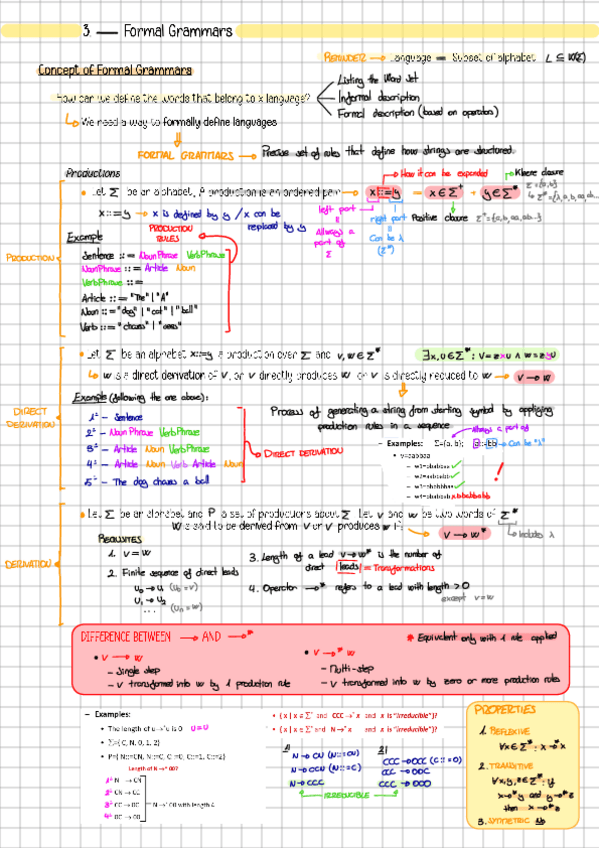 3. — Formal Grammars
REMINDER → Language = Subset of alphabet L ⊆ W(Σ)
Concept of Formal Grammars
How can we define the words that belong to x language?
Listing the Word Set
Informal description
Formal description (based on operators)
↳ We need a way to formally define languages
FORMAL GRAMMARS → Precise set of rules that define how strings are structured.
PRODUCTION
Productions
• Let Σ be an alphabet. A production is an ordered pair → x ::= y → x ∈ Σ⁺ y ∈ Σ*
How it can be expanded
Kleene closure
Σ={a,b}
x ::= y → x is defined by y / x can be replaced by y
left part = Always a part of Σ
right part = Can be λ (Σ*)
Positive closure
Example
PRODUCTION RULES
Sentence ::= Noun Phrase Verb Phrase
Noun Phrase ::= Article Noun
Verb Phrase ::=
Article ::= "The" | "A"
Noun ::= "dog" | "cat" | "ball"
Verb ::= "chases" | "sees"
DIRECT DERIVATION
• Let Σ be an alphabet x::=y a production over Σ and v, w ∈ Σ*
∃z,u∈Σ* : v=zxu ∧ w=zyu
↳ w is a direct derivation of v, or v directly produces w or v is directly reduced to w → v → w
Example (following the one above):
1º - Sentence
2º - Noun Phrase Verb Phrase
3º - Article Noun Verb Phrase
4º - Article Noun Verb Article Noun
5º - The dog chases a ball
DIRECT DERIVATION
Process of generating a string from starting symbol by applying
production rules in a sequence
Always a part of
- Examples: Σ={a, b};
Can be "λ"
DERIVATION
• Let Σ be an alphabet and P a set of productions about Σ. Let v and w be two words of Σ*
W is said to be derived from v or v produces w if:
v → w*
Includes λ
REQUISITES
1. v = w
2. Finite sequence of direct leads
u₀ → u₁ (u₀ = v)
u₁ → u₂
... (uₙ = w)
3. Length of a lead v → w* is the number of
direct leads = Transformations
4. Operator →* refers to a lead with length > 0
except v = w
DIFFERENCE BETWEEN → AND →*
* Equivalent only with 1 rule applied
• v → w
- Single step
- v transformed into w by 1 production rule
• v →* w
- Multi-step
- v transformed into w by zero or more production rules
– Examples:
• The length of u→*u is 0 u = u
• Σ={C, N, 0, 1, 2}
• P={N::=CN, N::=C, C::=0, C::=1, C::=2}
Length of N →* 00?
1º N → CN
2º CN → CC
3º CC → 0C
4º 0C → 00
N→*00 with length 4
• { x | x ∈ Σ* and CCC →* x and x is "irreducible"}?
• { x | x ∈ Σ* and N →* x and x is "irreducible"}?
1)
N → CN (N::=CN)
N → CCN (N::=C)
N → CCC
2)
CCC → 0CC (C::=0)
0CC → 00C
CCC → 000
IRREDUCIBLE
PROPERTIES
1. REFLEXIVE
∀x ∈ Σ* : x →* x
2. TRANSITIVE
∀x,y,z ∈ Σ* : if
x →* y and y →* z
then x →* z
3. SYMMETRIC No